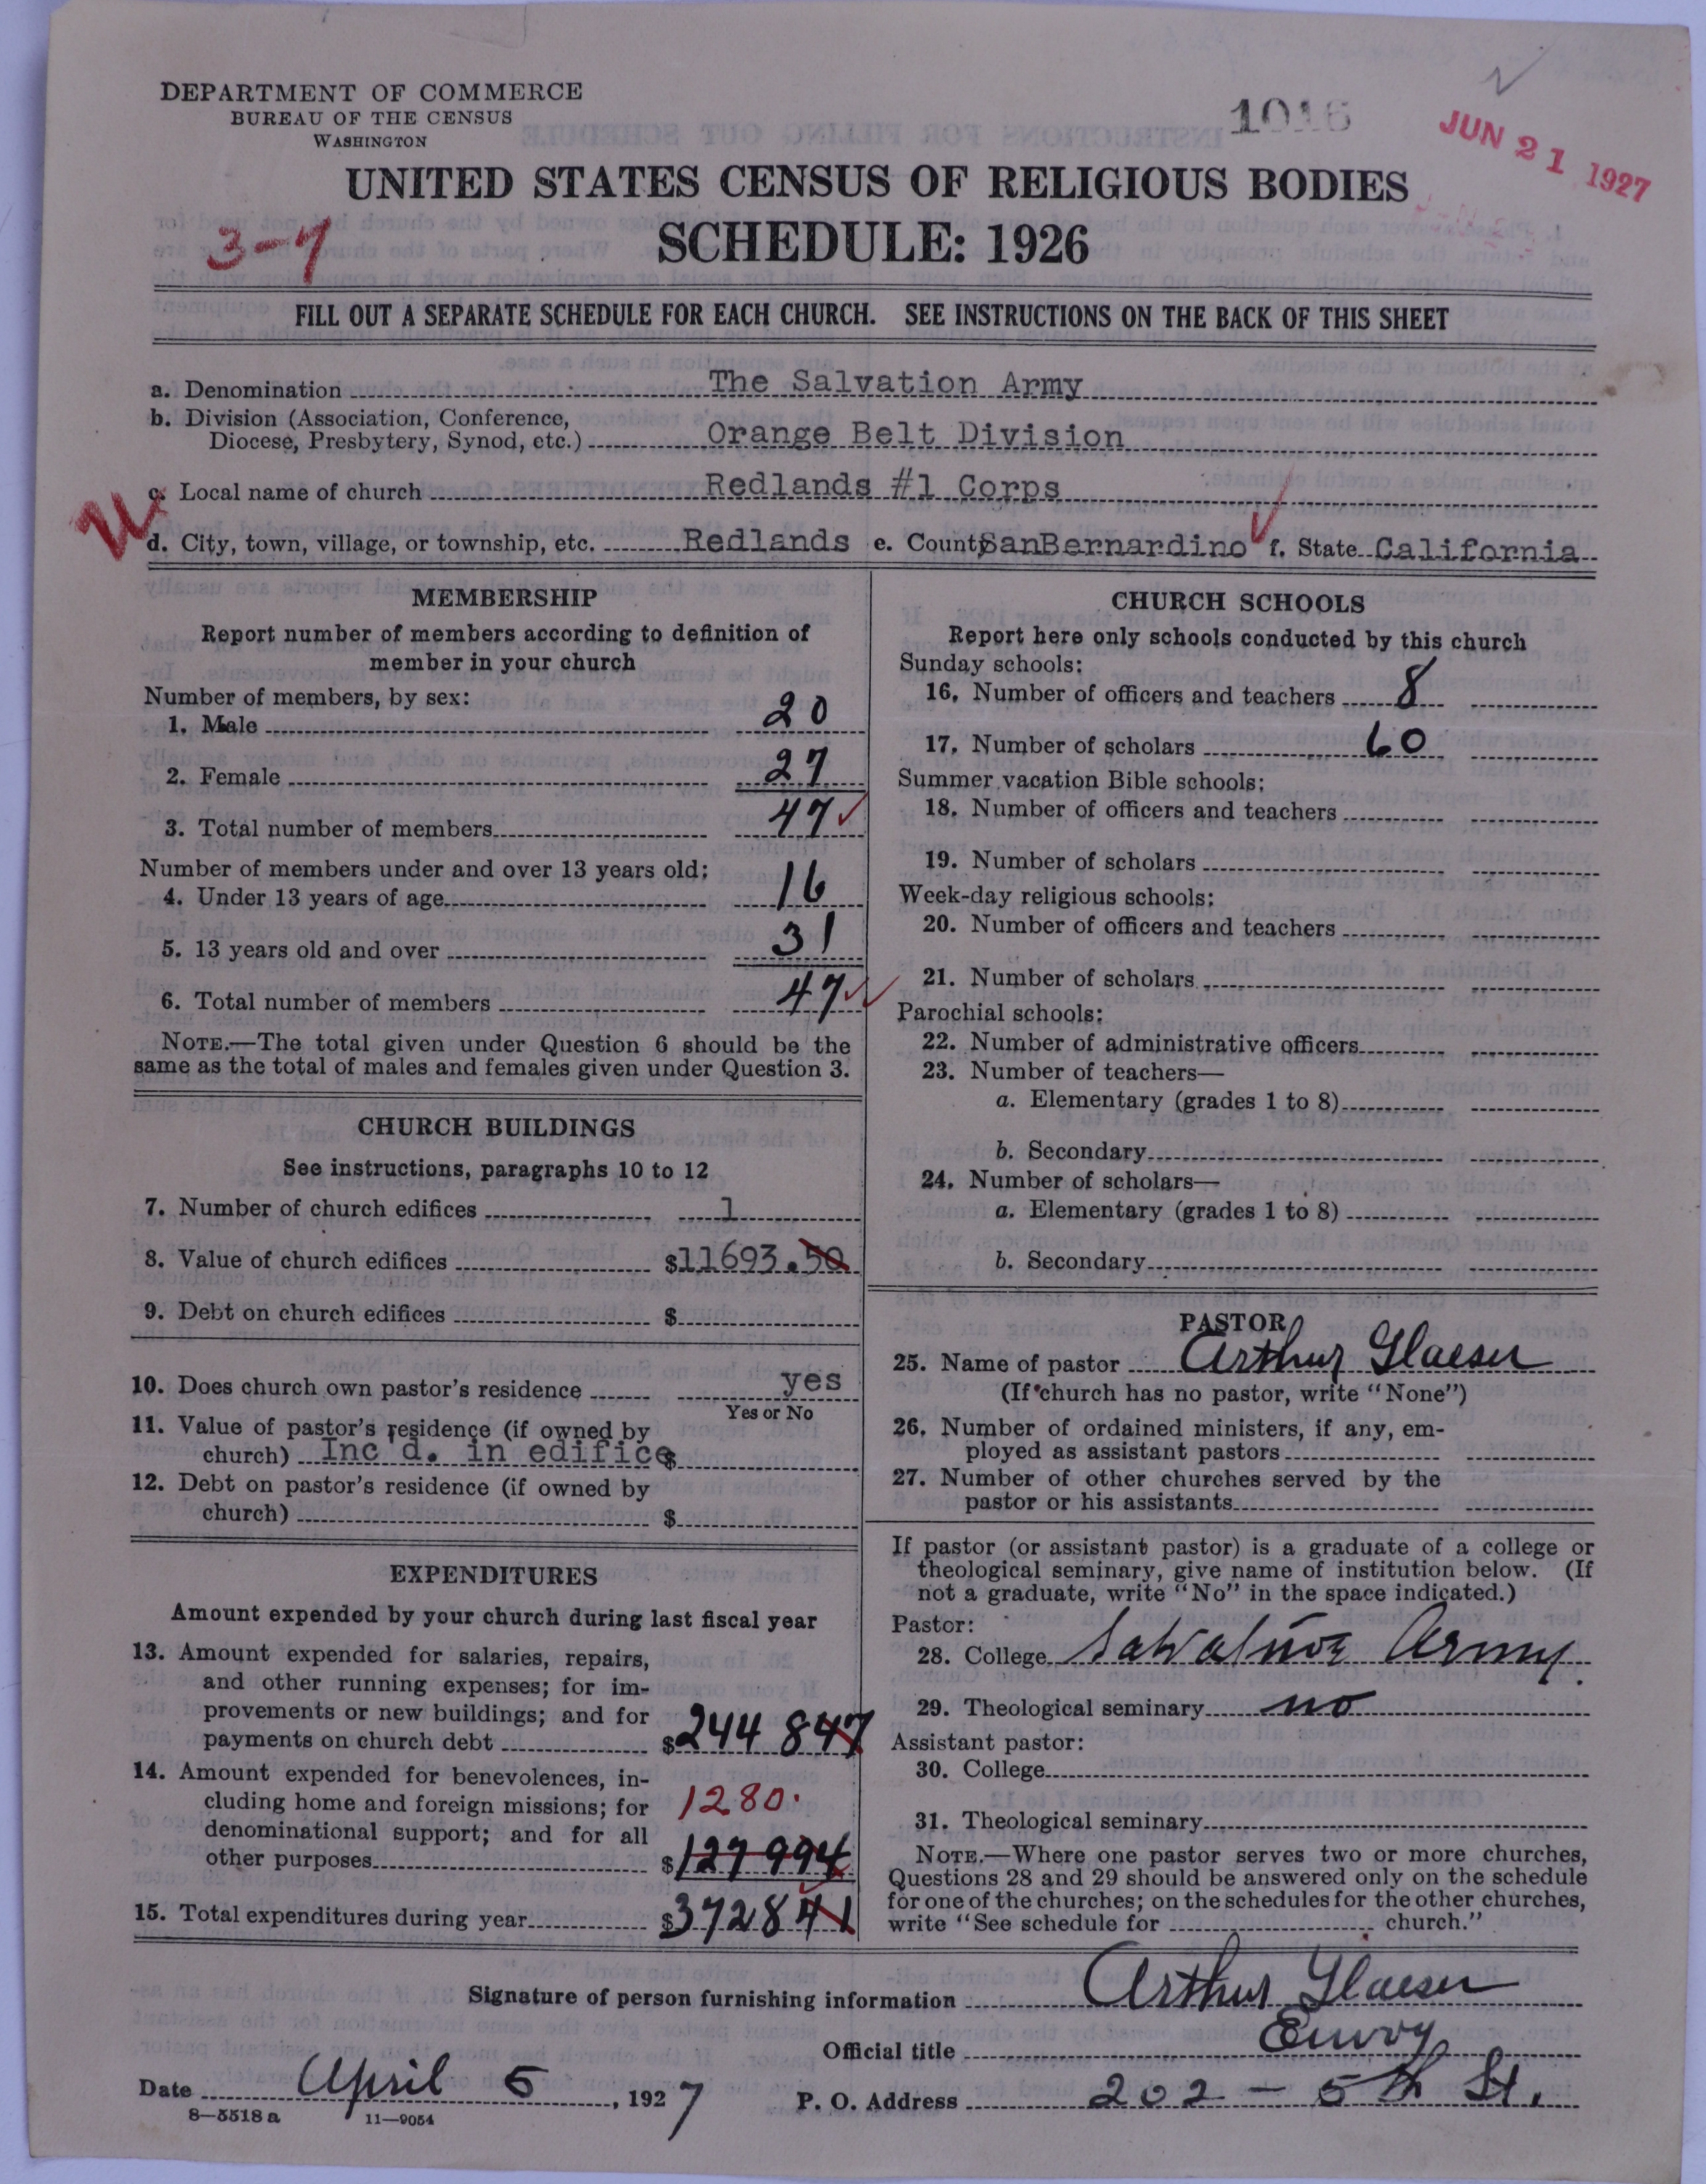 DEPARTMENT OF COMMERCE
BUREAU OF THE CENSUS
WASHINGTON
1016
JUN 21 1927
UNITED STATES CENSUS OF RELIGIOUS BODIES
3-7
SCHEDULE: 1926
FILL OUT A SEPARATE SCHEDULE FOR EACH CHURCH. SEE INSTRUCTIONS ON THE BACK OF THIS SHEET
a. Denomination The Salvation Army
b. Division (Association, Conference,
Diocese, Presbytery, Synod, etc.) Orange Belt Division
c. Local name of church Redlands #1 Corps
d. City, town, village, or township, etc. Redlands e. County SanBernardino f. State California
MEMBERSHIP
Report number of members according to definition of
member in your church
Number of members, by sex:
1. Male 20
2. Female 27
3. Total number of members 47
Number of members under and over 13 years old:
4. Under 13 years of age 16
5. 13 years old and over 31
6. Total number of members 47
NOTE.—The total given under Question 6 should be the
same as the total of males and females given under Question 3.
CHURCH BUILDINGS
See instructions, paragraphs 10 to 12
7. Number of church edifices 1
8. Value of church edifices $11693.50
9. Debt on church edifices $
10. Does church own pastor's residence yes
Yes or No
11. Value of pastor's residence (if owned by
church) Inc'd. in edifice $
12. Debt on pastor's residence (if owned by
church) $
EXPENDITURES
Amount expended by your church during last fiscal year
13. Amount expended for salaries, repairs,
and other running expenses; for im-
provements or new buildings; and for
payments on church debt $244847
14. Amount expended for benevolences, in-
cluding home and foreign missions; for 1280.
denominational support; and for all
other purposes $127994
15. Total expenditures during year $372841
CHURCH SCHOOLS
Report here only schools conducted by this church
Sunday schools:
16. Number of officers and teachers 8
17. Number of scholars 60
Summer vacation Bible schools:
18. Number of officers and teachers
19. Number of scholars
Week-day religious schools:
20. Number of officers and teachers
21. Number of scholars
Parochial schools:
22. Number of administrative officers
23. Number of teachers—
a. Elementary (grades 1 to 8)
b. Secondary
24. Number of scholars—
a. Elementary (grades 1 to 8)
b. Secondary
PASTOR
25. Name of pastor Arthur Glaeser
(If church has no pastor, write "None")
26. Number of ordained ministers, if any, em-
ployed as assistant pastors
27. Number of other churches served by the
pastor or his assistants
If pastor (or assistant pastor) is a graduate of a college or
theological seminary, give name of institution below. (If
not a graduate, write "No" in the space indicated.)
Pastor:
28. College Salvation Army.
29. Theological seminary no
Assistant pastor:
30. College
31. Theological seminary
NOTE.—Where one pastor serves two or more churches,
Questions 28 and 29 should be answered only on the schedule
for one of the churches; on the schedules for the other churches,
write "See schedule for church."
Signature of person furnishing information Arthur Glaeser
Official title Envoy
Date April 5, 1927 P. O. Address 202 - 5th St.
8—5518 a 11—9054